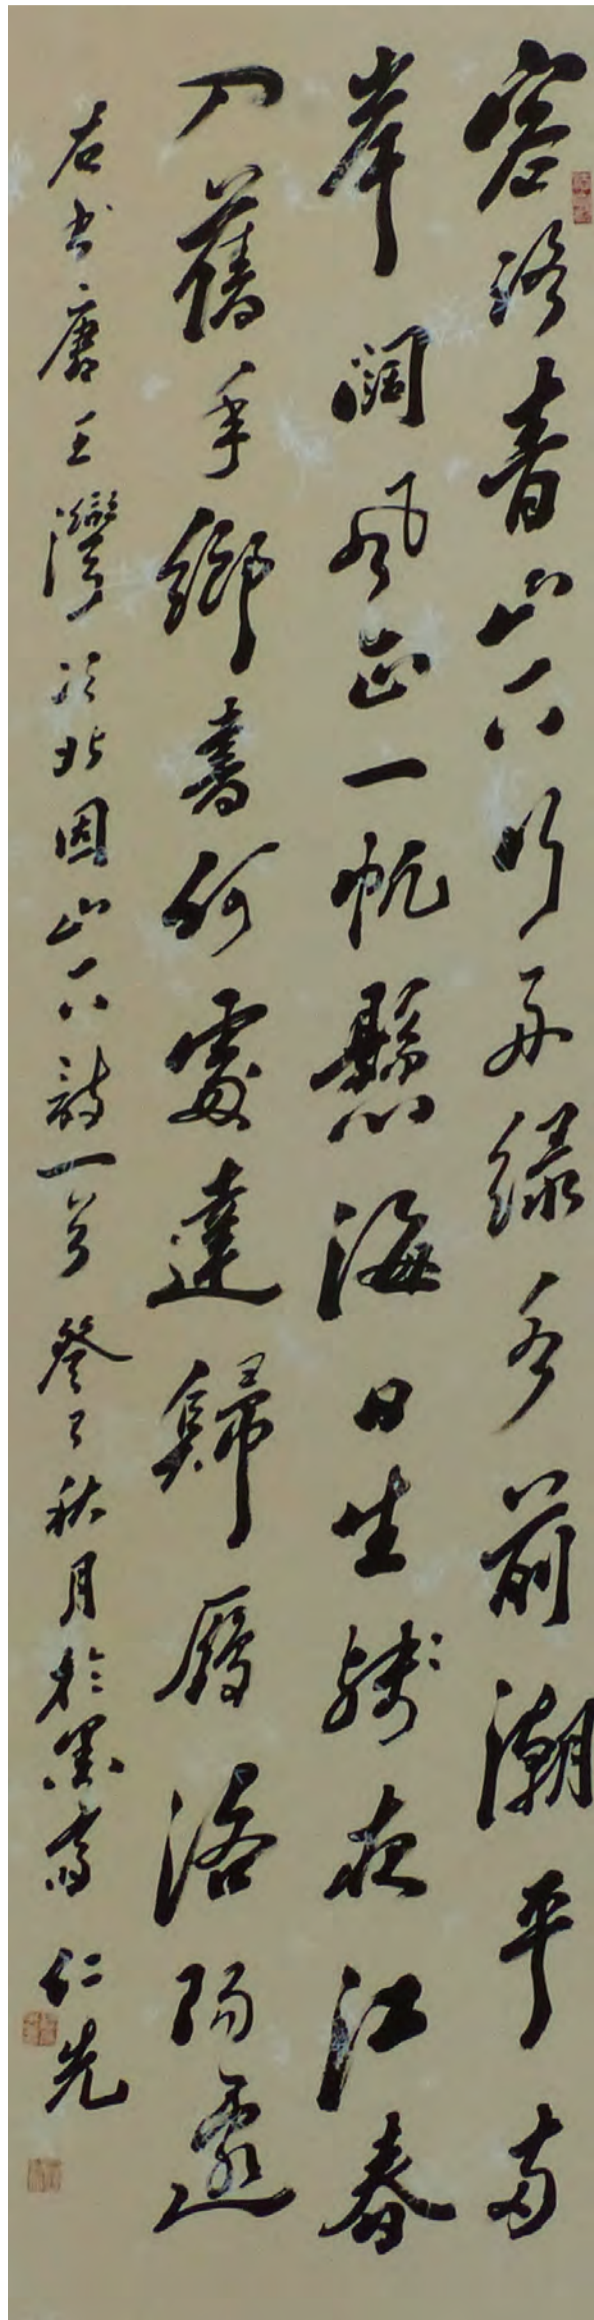 客路青山下行舟綠水前潮平兩
岸闊風正一帆懸海日生殘夜江春
入舊年鄉書何處達歸雁洛陽邊
右書唐王灣次北固山下詩一首癸巳秋月於墨齋仁先